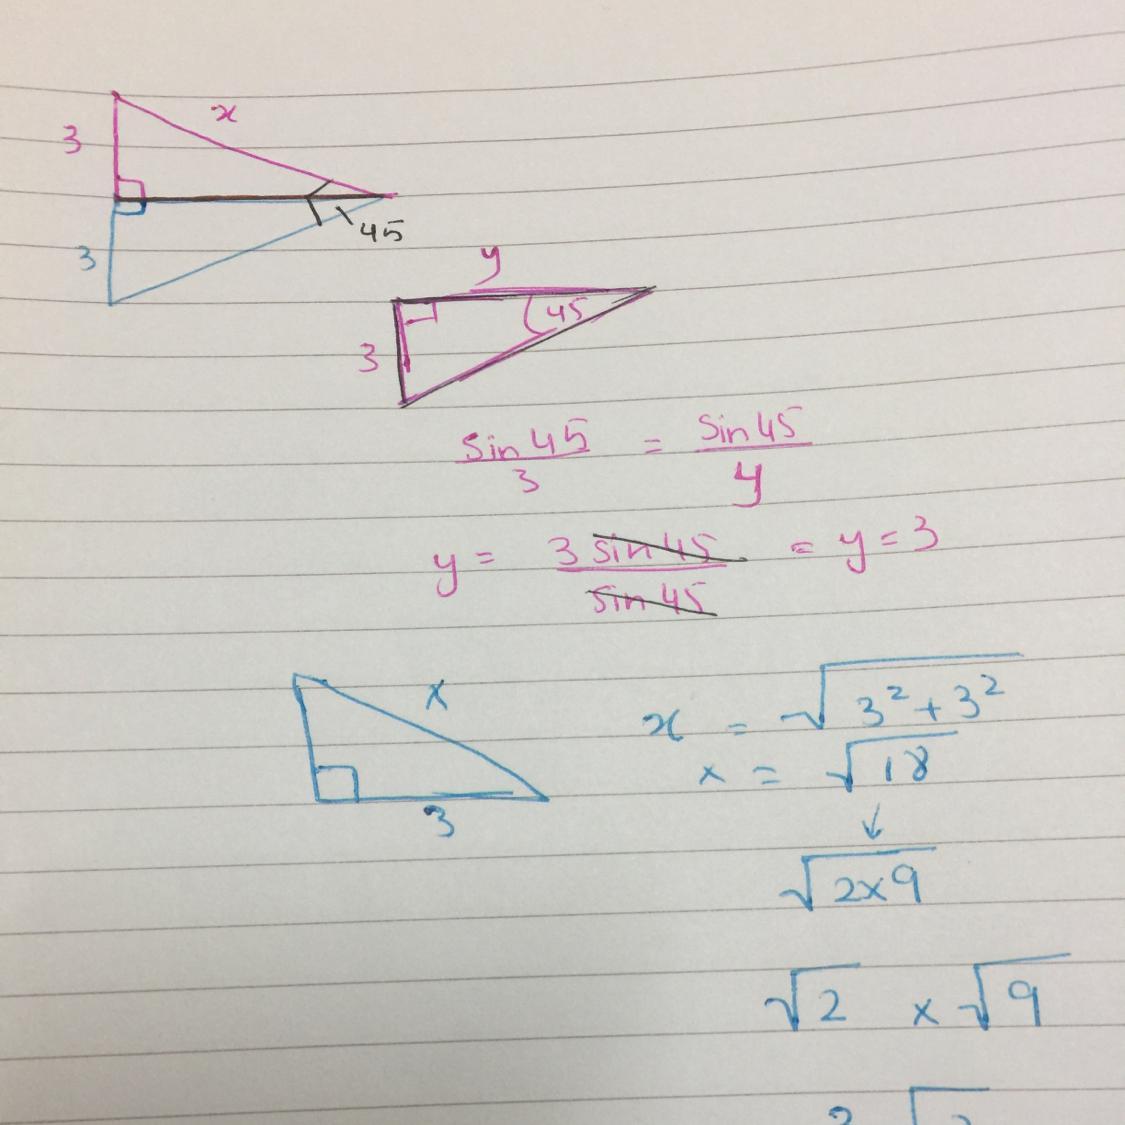 x
3
3
45
y
45
3
sin 45 / 3 = sin 45 / y
y = 3 sin 45 / sin 45 = y = 3
x
3
x = √(3² + 3²)
x = √18
↓
√(2x9)
√2 x √9